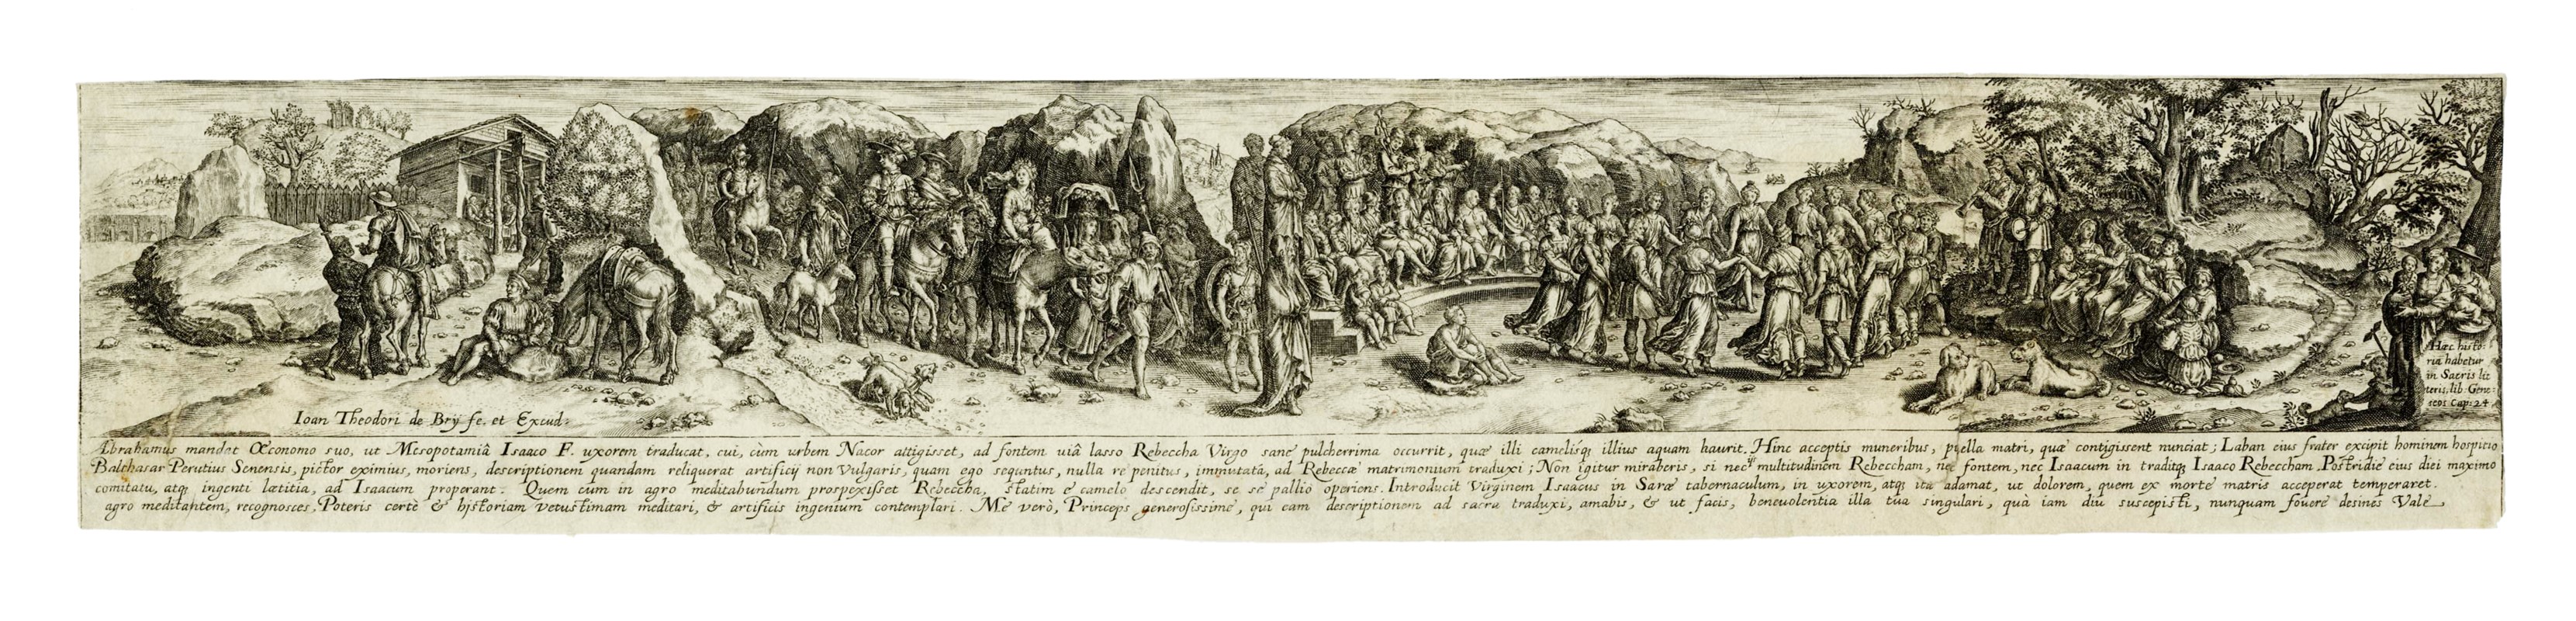 Hæc histo:
ria habetur
in Sacris lit
teris, lib. Gene:
seos Cap: 24
Ioan Theodori de Brÿ fe. et Excud:
Abrahamus mandat Œconomo suo, ut Mesopotamiâ Isaaco F. uxorem traducat, cui, cùm urbem Nacor attigisset, ad fontem viâ lasso Rebeccha Virgo sanè pulcherrima occurrit, quæ illi camelisq; illius aquam haurit. Hinc acceptis muneribus, puella matri, quæ contigissent nunciat; Laban eius frater excipit hominem hospitio
Balthasar Perutius Senensis, pictor eximius, moriens, descriptionem quandam reliquerat artificij non vulgaris, quam ego sequutus, nulla re penitus, immutatâ, ad Rebeccæ matrimonium traduxi; Non igitur miraberis, si nec multitudinem Rebeccham, nec fontem, nec Isaacum in traditq; Isaaco Rebeccham. Postridiè eius diei maximo
comitatu, atq; ingenti lætitia, ad Isaacum properant. Quem cum in agro meditabundum prospexisset Rebeccha, statim è camelo descendit, se se pallio operiens. Introducit Virginem Isaacus in Saræ tabernaculum, in uxorem, atq; ita adamat, ut dolorem, quem ex morte matris acceperat temperaret.
agro meditantem, recognosces, Poteris certè & historiam vetustimam meditari, & artificis ingenium contemplari. Me verò, Princeps generosissime, qui eam descriptionem ad sacra traduxi, amabis, & ut facis, benevolentia illa tua singulari, quâ iam diu suscepisti, nunquam fovere desines Vale